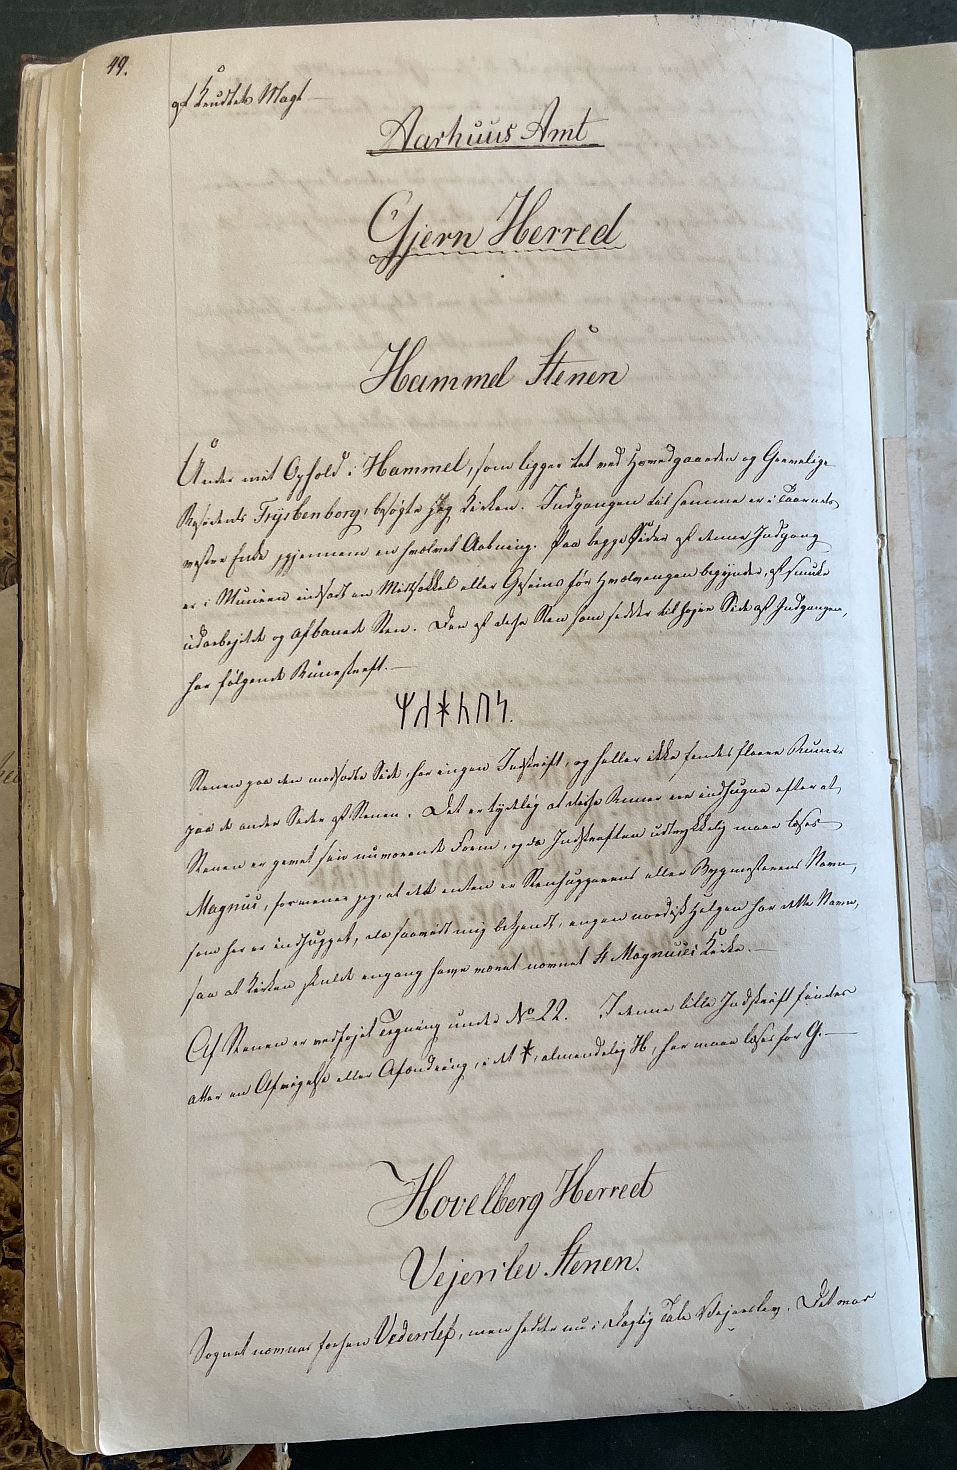 49.
af Krudtets Magt —
Aarhuus Amt
Gjern Herred
Hammel Stenen
Under mit Ophold i Hammel, som ligger tæt ved Hovedgaarden og Grevelige
Residents Frijsenborg, besøgte jeg Kirken. Indgangen til samme er i Taarnets
vestre Ende gjennem en hvælvet Aabning. Paa begge Sider af denne Indgang
er i Muuren indsadt en eller Gesims før Hvælvingen begynder, af smukt
udarbejdet og Sten. Den af disse Sten som sidder til højre Side af Indgangen,
har følgende Runeskrift. —
ᛘᛆᚼᚿᚢᛋ.
Stenen paa den modsatte Side, har ingen Indskrift, og heller ikke findes fleere Runer
paa de andre Sider af Stenen. Det er tydelig at disse Runer ere indhugne efter at
Stenen er givet sin nuværende Form, og da Indskriften udtrykkelig maa læses
Magnus, formener jeg, at det enten er Stenhuggerens eller Bygmesterens Navn,
som her er indhugget, da saavidt mig bekjendt, ingen nordisk Helgen har dette Navn,
saa at Kirken skulde engang have været nævnet St Magnuus Kirke. —
Af Stenen er vedføjet Tegning under No 22. I denne lille Indskrift findes
atter en Afvigelse eller Aforandring, i det ᚼ, almindelig H, her maa læses for G. —
Hovelberg Herred
Vejerslev Stenen.
Sognet nævnes forhen Vederslef, men hedder nu i daglig Tale Vejerslev. Det var